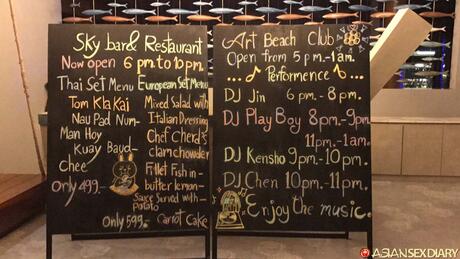 Sky bar & Restaurant
Now open 6 pm. to 10 pm.
Thai Set Menu
Tom Kla Kai
Nau Pad Num-
Man Hoy
Kuay Baud-
chee
Only 499.-
European Set Menu
Mixed Salad with
Italian Dressing
Chef Cheral's
clam chowder
Fillet Fish in-
butter lemon-
Sauce Served with-
Potato
Carrot Cake
Only 599.-
Art Beach Club
Open from 5 pm.-1am.
Performence
DJ Jin 6pm.-8pm.
DJ Play Boy 8pm.-9pm.
11pm.-1am.
DJ Kensho 9pm.-10pm.
DJ Chen 10pm.-11pm.
Enjoy the music.
ASIANSEXDIARY